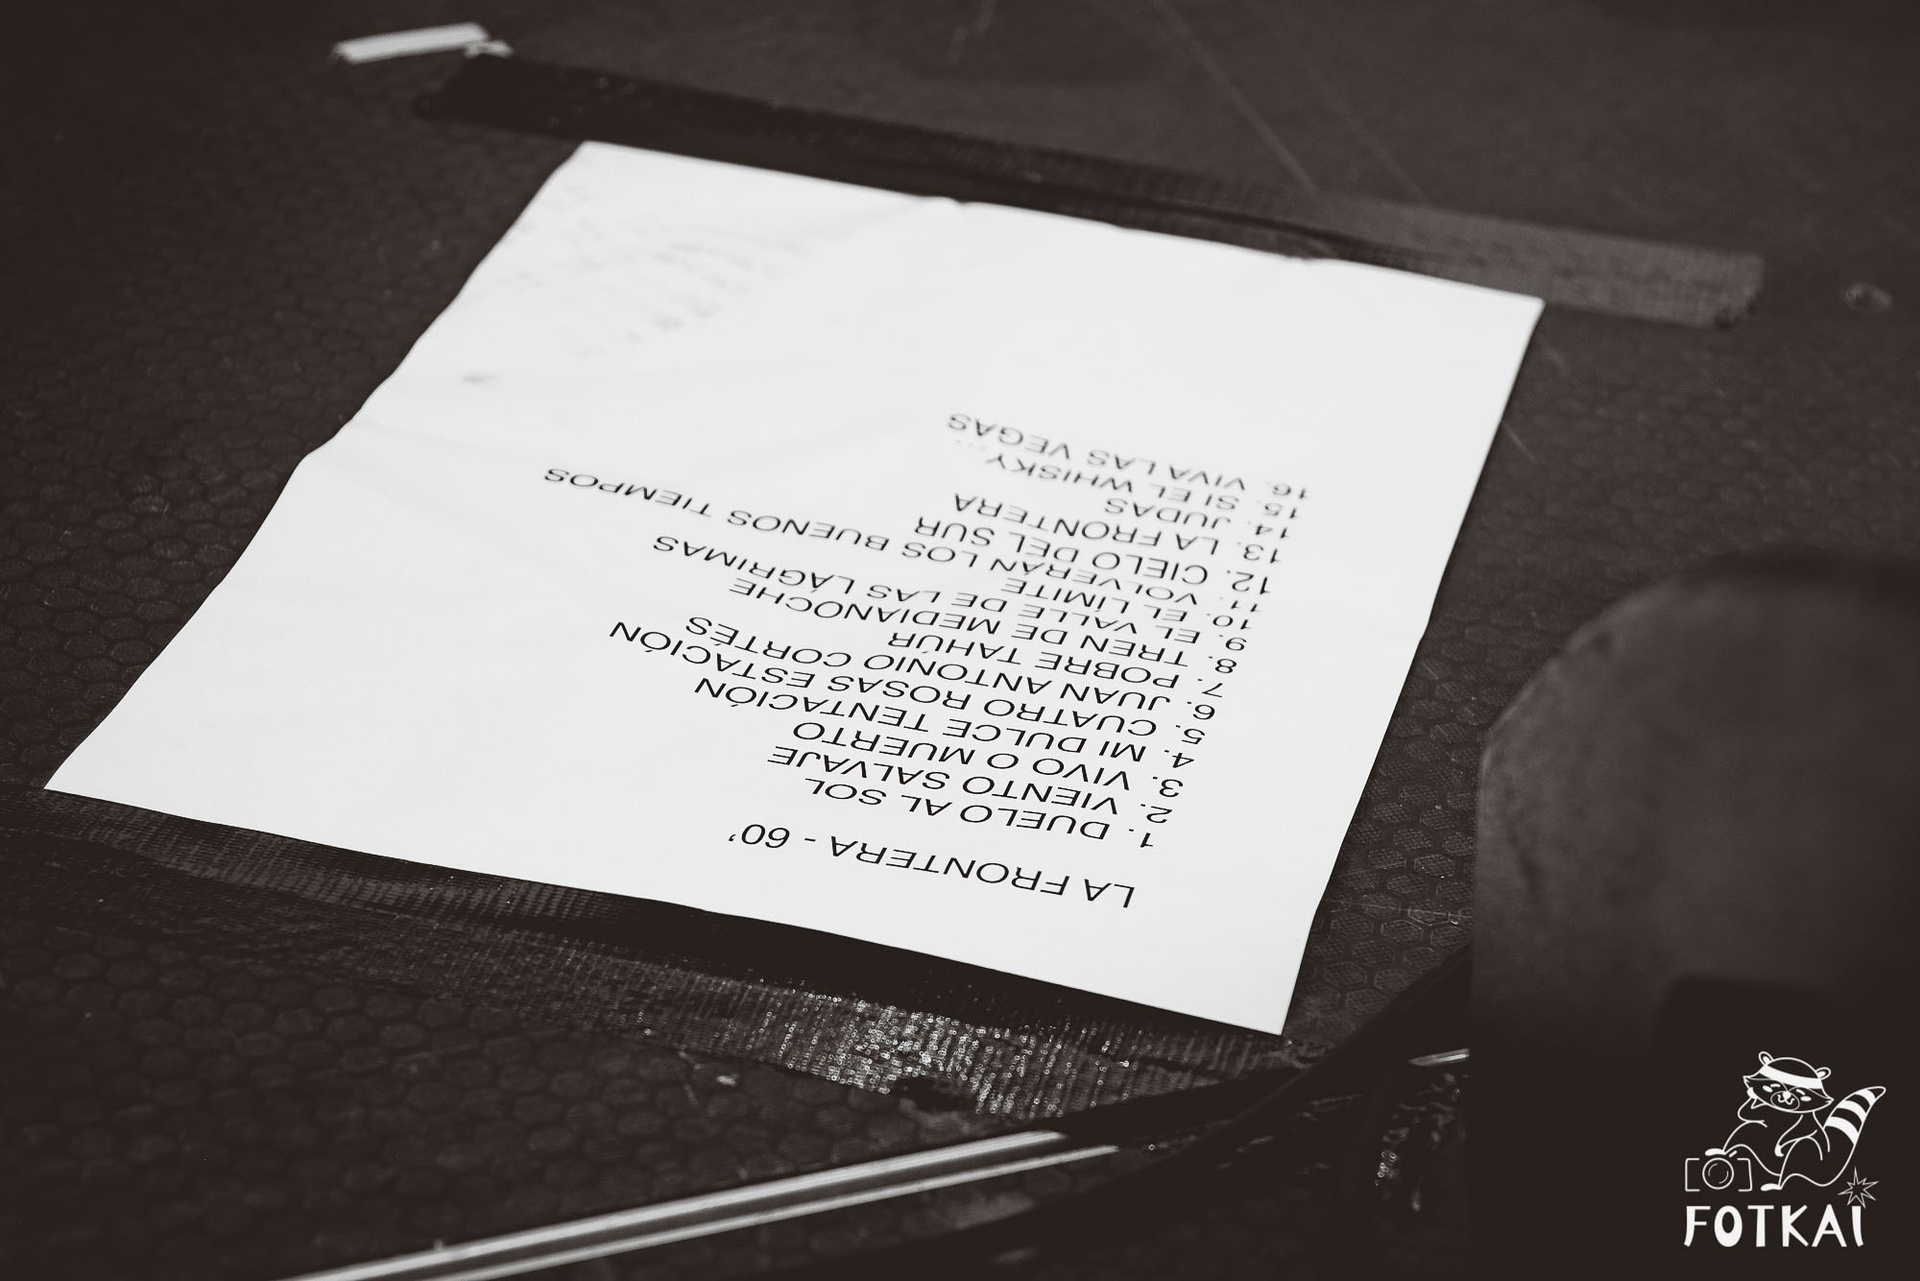 LA FRONTERA - 60'
1. DUELO AL SOL
2. VIENTO SALVAJE
3. VIVO O MUERTO
4. MI DULCE TENTACIÓN
5. CUATRO ROSAS ESTACIÓN
6. JUAN ANTONIO CORTÉS
7. POBRE TAHÚR
8. TREN DE MEDIANOCHE
9. EL VALLE DE LAS LÁGRIMAS
10. EL LÍMITE
11. VOLVERÁN LOS BUENOS TIEMPOS
12. CIELO DEL SUR
13. LA FRONTERA
14. JUDAS
15. SI EL WHISKY...
16. VIVA LAS VEGAS
FOTKAI